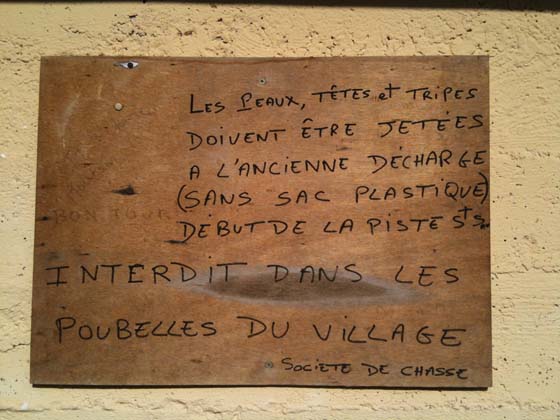 LES PEAUX, TÊTES et TRIPES
DOIVENT ÊTRE JETÉES
A L'ANCIENNE DÉCHARGE
(SANS SAC PLASTIQUE)
DEBUT DE LA PISTE
INTERDIT DANS LES
POUBELLES DU VILLAGE
SOCIETE DE CHASSE